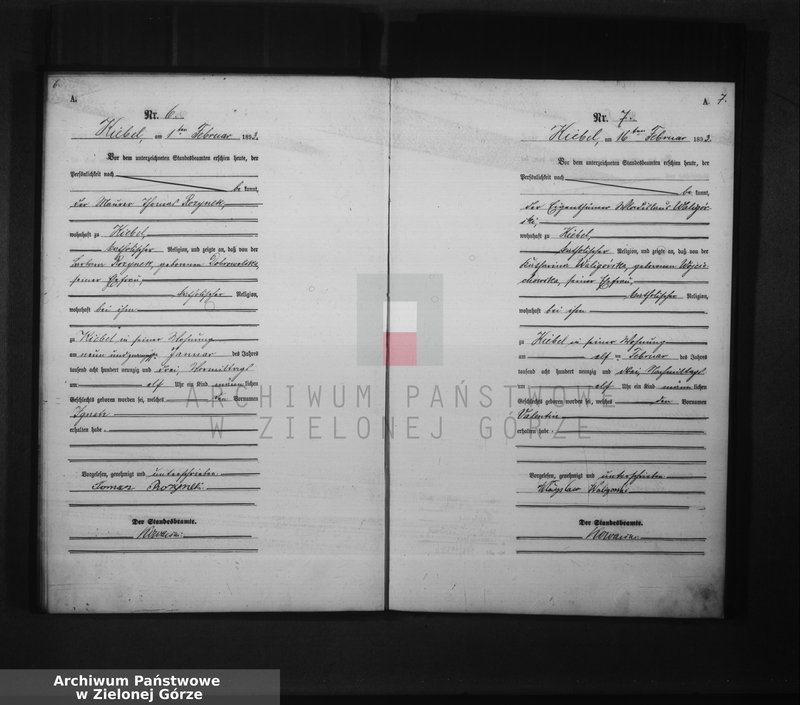 6.
A.
Nr. 6.
Kiebel, am 1ten Februar 1893.
Vor dem unterzeichneten Standesbeamten erschien heute, der
Persönlichkeit nach
be kannt,
der Maurer Thomas Rozynek,
wohnhaft zu Kiebel,
katholischer Religion, und zeigte an, daß von der
Rozynek, geborenen Dobrowolska,
seiner Ehefrau,
katholischer Religion,
wohnhaft bei ihm
zu Kiebel in seiner Wohnung
am neun und zwanzigsten Januar des Jahres
tausend acht hundert neunzig und drei, Vormittags
um elf Uhr ein Kind männ lichen
Geschlechts geboren worden sei, welches den Vornamen
Ignatz
erhalten habe.
Vorgelesen, genehmigt und unterschrieben
Tomas
Der Standesbeamte.
A. 7.
Nr. 7.
Kiebel, am 16ten Februar 1893.
Vor dem unterzeichneten Standesbeamten erschien heute, der
Persönlichkeit nach
be kannt,
der Eigenthümer Wladislaus Waligór-
ski,
wohnhaft zu Kiebel,
katholischer Religion, und zeigte an, daß von der
Katharina Waligórska, geborenen Wojcie-
chowska, seiner Ehefrau,
katholischer Religion,
wohnhaft bei ihm
zu Kiebel in seiner Wohnung
am elf ten Februar des Jahres
tausend acht hundert neunzig und drei, Nachmittags
um elf Uhr ein Kind männ lichen
Geschlechts geboren worden sei, welches den Vornamen
Valentin
erhalten habe.
Vorgelesen, genehmigt und unterschrieben
Der Standesbeamte.
ARCHIWUM PAŃSTWOWE
W ZIELONEJ GÓRZE
Archiwum Państwowe
w Zielonej Górze